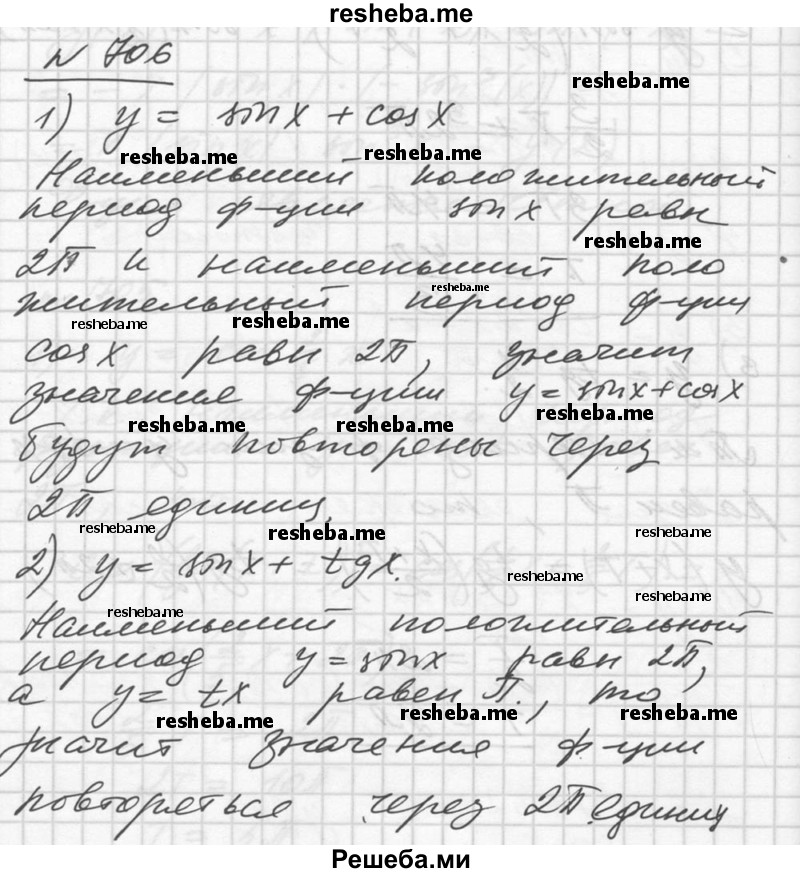 resheba.me
N 706
resheba.me
1) y = sin x + cos x
resheba.me resheba.me
Наименьший положительный
период ф-ции sin x равн
resheba.me
2П и наименьший поло
жительный период ф-ции
resheba.me
resheba.me resheba.me
cos x равн 2П, значит
значение ф-ции y = sin x + cos x
resheba.me resheba.me resheba.me
будут повторены через
2П единиц.
resheba.me resheba.me resheba.me
2) y = sin x + tg x.
resheba.me
resheba.me resheba.me
Наименьший положительный
период y = sin x равн 2П,
а y = tx равен П., то
resheba.me resheba.me resheba.me
значит значения ф-ции
повторяеться через 2П единиц
Решеба.ми